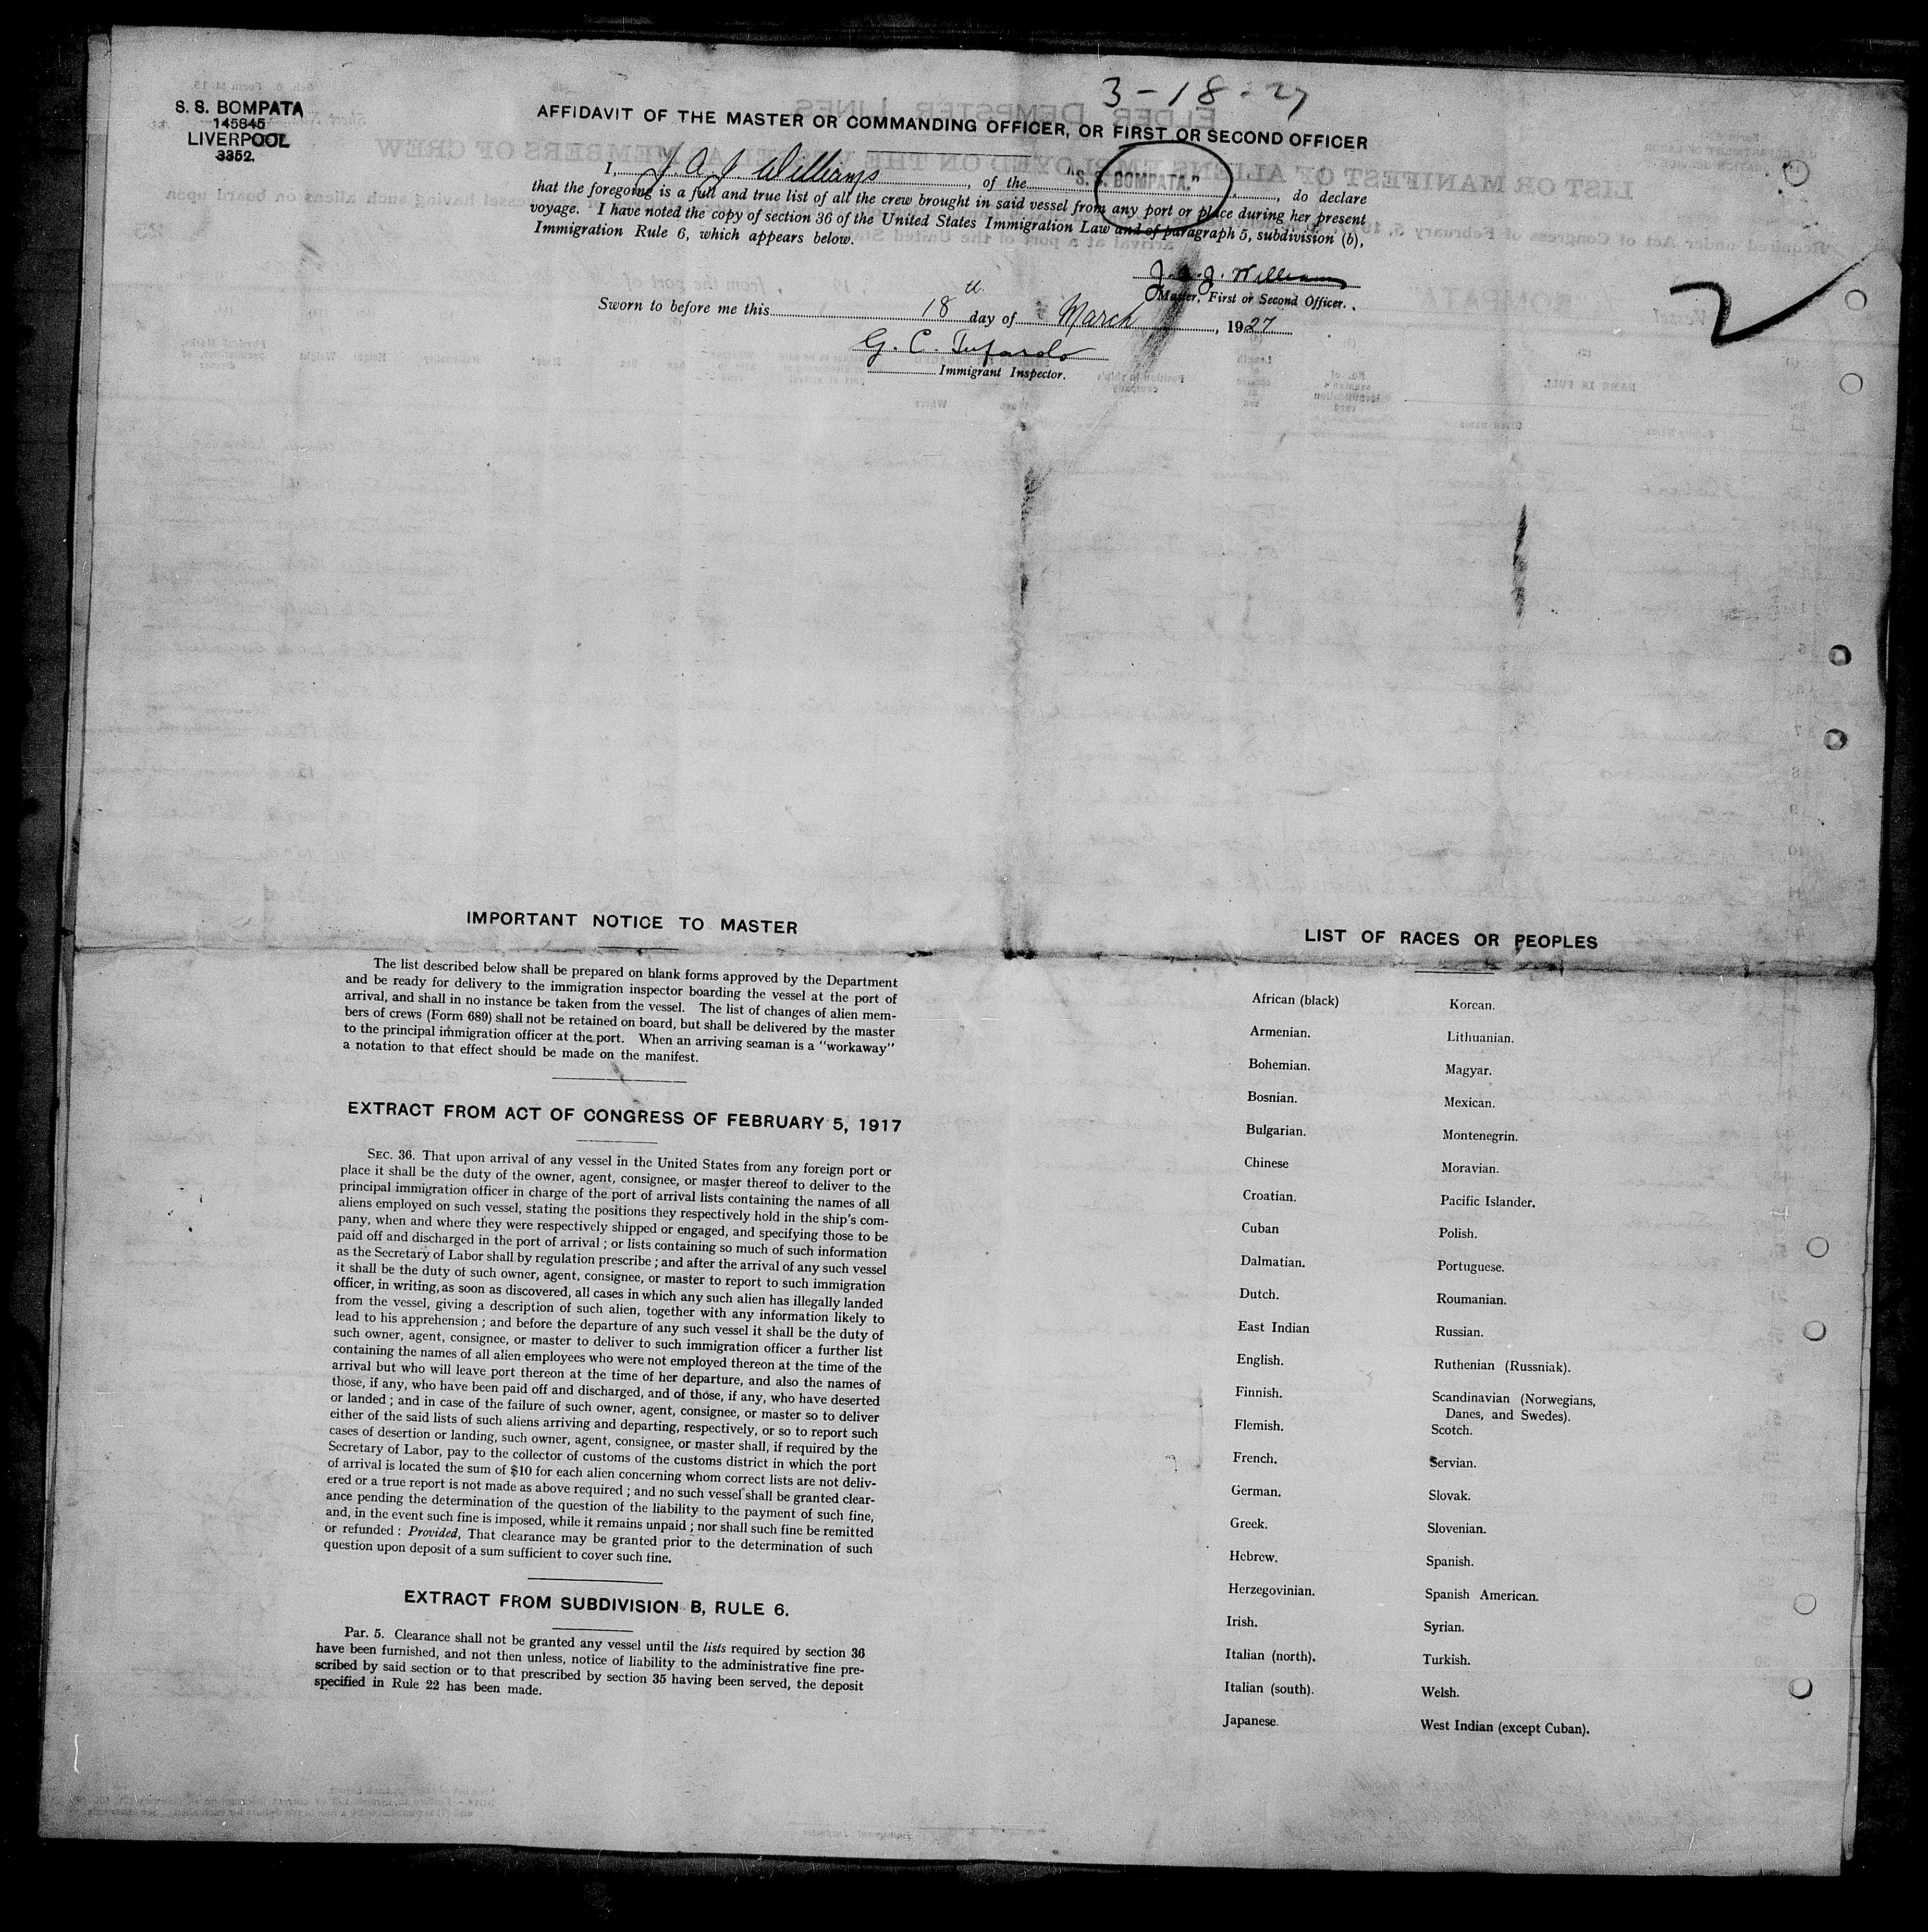 3-18-27
S. S. BOMPATA
145845
LIVERPOOL
3352.
AFFIDAVIT OF THE MASTER OR COMMANDING OFFICER, OR FIRST OR SECOND OFFICER
I, J. A. J. Williams, of the "S. S. BOMPATA.", do declare
that the foregoing is a full and true list of all the crew brought in said vessel from any port or place during her present
voyage. I have noted the copy of section 36 of the United States Immigration Law and of paragraph 5, subdivision (b),
Immigration Rule 6, which appears below.
J. A. J. Williams
Master, First or Second Officer.
Sworn to before me this 18th day of March, 1927
G. C.
Immigrant Inspector.
IMPORTANT NOTICE TO MASTER
The list described below shall be prepared on blank forms approved by the Department
and be ready for delivery to the immigration inspector boarding the vessel at the port of
arrival, and shall in no instance be taken from the vessel. The list of changes of alien mem-
bers of crews (Form 689) shall not be retained on board, but shall be delivered by the master
to the principal immigration officer at the port. When an arriving seaman is a "workaway"
a notation to that effect should be made on the manifest.
EXTRACT FROM ACT OF CONGRESS OF FEBRUARY 5, 1917
SEC. 36. That upon arrival of any vessel in the United States from any foreign port or
place it shall be the duty of the owner, agent, consignee, or master thereof to deliver to the
principal immigration officer in charge of the port of arrival lists containing the names of all
aliens employed on such vessel, stating the positions they respectively hold in the ship's com-
pany, when and where they were respectively shipped or engaged, and specifying those to be
paid off and discharged in the port of arrival; or lists containing so much of such information
as the Secretary of Labor shall by regulation prescribe; and after the arrival of any such vessel
it shall be the duty of such owner, agent, consignee, or master to report to such immigration
officer, in writing, as soon as discovered, all cases in which any such alien has illegally landed
from the vessel, giving a description of such alien, together with any information likely to
lead to his apprehension; and before the departure of any such vessel it shall be the duty of
such owner, agent, consignee, or master to deliver to such immigration officer a further list
containing the names of all alien employees who were not employed thereon at the time of the
arrival but who will leave port thereon at the time of her departure, and also the names of
those, if any, who have been paid off and discharged, and of those, if any, who have deserted
or landed; and in case of the failure of such owner, agent, consignee, or master so to deliver
either of the said lists of such aliens arriving and departing, respectively, or so to report such
cases of desertion or landing, such owner, agent, consignee, or master shall, if required by the
Secretary of Labor, pay to the collector of customs of the customs district in which the port
of arrival is located the sum of $10 for each alien concerning whom correct lists are not deliv-
ered or a true report is not made as above required; and no such vessel shall be granted clear-
ance pending the determination of the question of the liability to the payment of such fine,
and, in the event such fine is imposed, while it remains unpaid; nor shall such fine be remitted
or refunded: Provided, That clearance may be granted prior to the determination of such
question upon deposit of a sum sufficient to cover such fine.
EXTRACT FROM SUBDIVISION B, RULE 6.
Par. 5. Clearance shall not be granted any vessel until the lists required by section 36
have been furnished, and not then unless, notice of liability to the administrative fine pre-
scribed by said section or to that prescribed by section 35 having been served, the deposit
specified in Rule 22 has been made.
LIST OF RACES OR PEOPLES
African (black)
Armenian.
Bohemian.
Bosnian.
Bulgarian.
Chinese
Croatian.
Cuban
Dalmatian.
Dutch.
East Indian
English.
Finnish.
Flemish.
French.
German.
Greek.
Hebrew.
Herzegovinian.
Irish.
Italian (north).
Italian (south).
Japanese.
Korean.
Lithuanian.
Magyar.
Mexican.
Montenegrin.
Moravian.
Pacific Islander.
Polish.
Portuguese.
Roumanian.
Russian.
Ruthenian (Russniak).
Scandinavian (Norwegians,
Danes, and Swedes).
Scotch.
Servian.
Slovak.
Slovenian.
Spanish.
Spanish American.
Syrian.
Turkish.
Welsh.
West Indian (except Cuban).